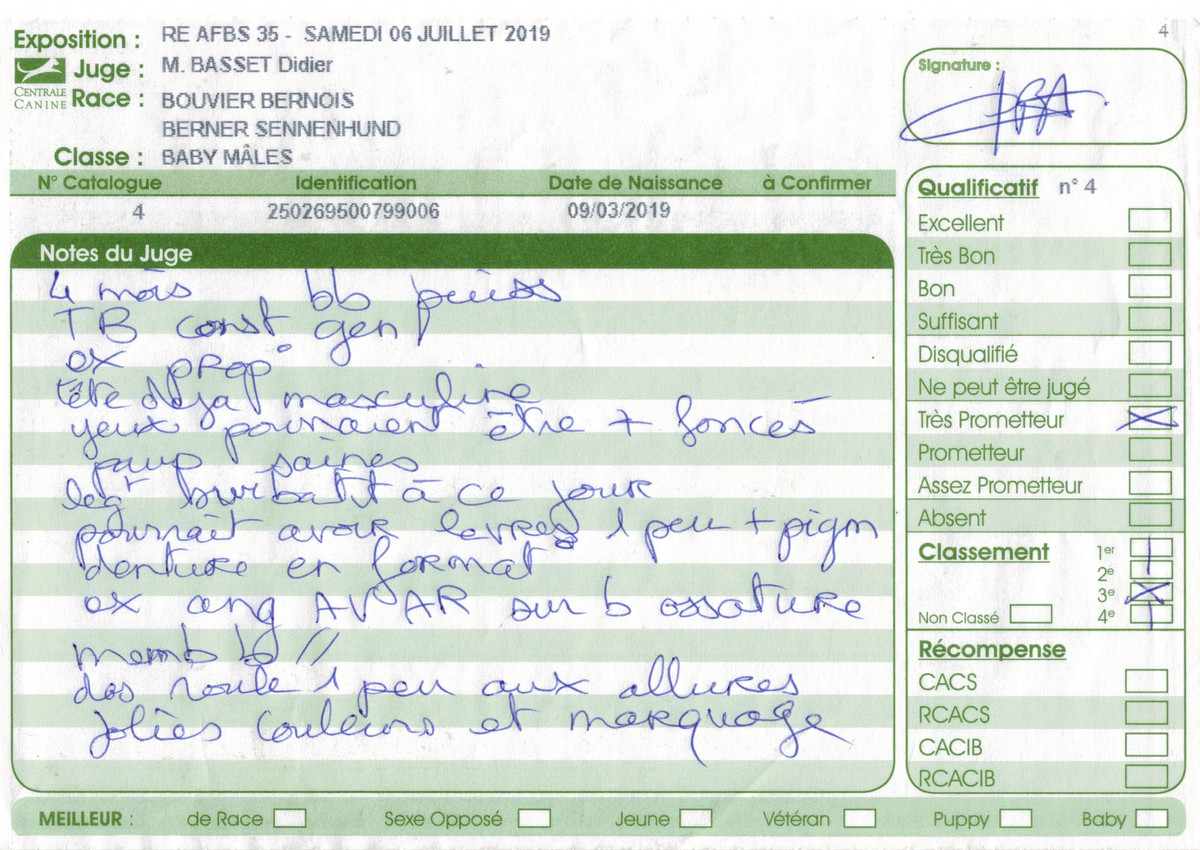 4
Exposition : RE AFBS 35 - SAMEDI 06 JUILLET 2019
Juge : M. BASSET Didier
CENTRALE CANINE
Race : BOUVIER BERNOIS
BERNER SENNENHUND
Classe : BABY MÂLES
Signature :
N° Catalogue Identification Date de Naissance à Confirmer
4 250269500799006 09/03/2019
Notes du Juge
4 mois, bb puiss
TB const gen
ex prop°
tête déjà masculine
yeux pourraient être + foncés
paup saines
legt à ce jour
pourrait avoir levres 1 peu + pigm
denture en format°
ex ang AV AR sur b ossature
memb //
dos roule 1 peu aux allures
jolies couleurs et marquage
Qualificatif n° 4
Excellent
Très Bon
Bon
Suffisant
Disqualifié
Ne peut être jugé
Très Prometteur X
Prometteur
Assez Prometteur
Absent
Classement 1er
2e
3e X
Non Classé 4e
Récompense
CACS
RCACS
CACIB
RCACIB
MEILLEUR : de Race Sexe Opposé Jeune Vétéran Puppy Baby